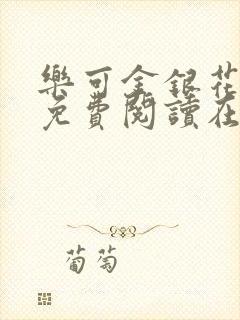 樂可金銀花
免費閱讀在
葡萄